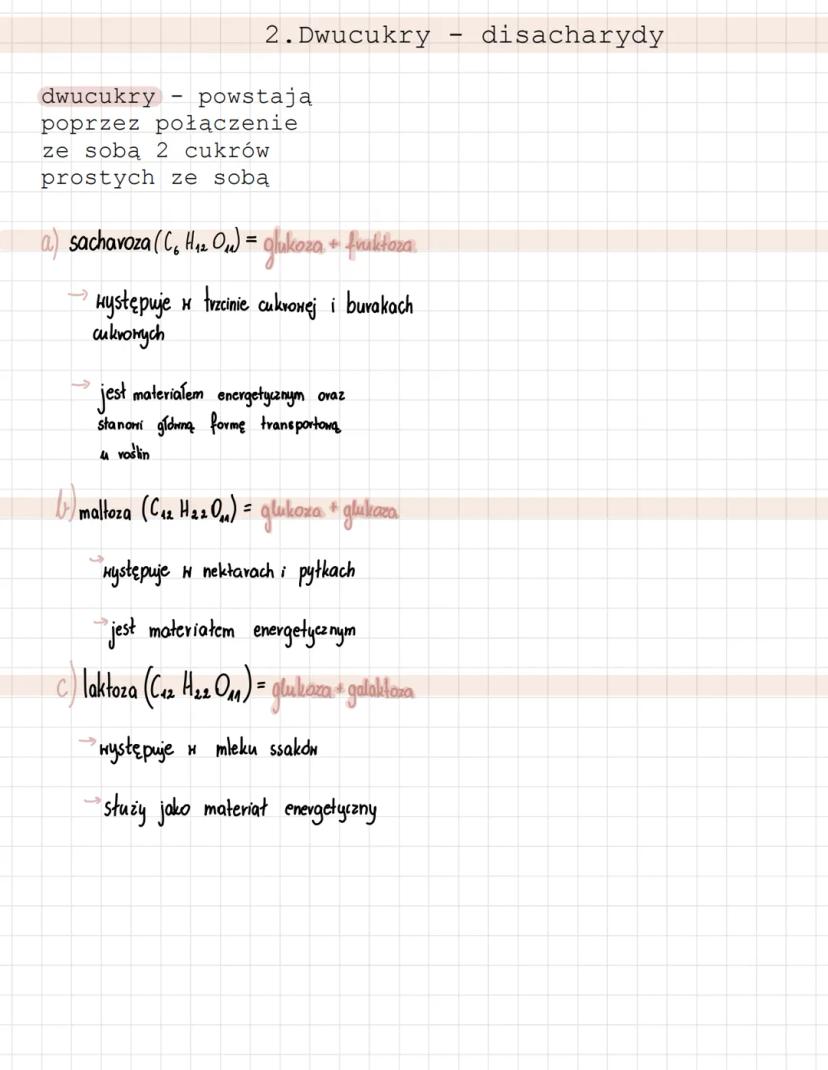 2.Dwucukry - disacharydy
dwucukry - powstają
poprzez połączenie
ze sobą 2 cukrów
prostych ze sobą
a) sacharoza (C₆ H₁₂ O₁₁) = glukoza + fruktoza
→ występuje w trzcinie cukrowej i burakach
cukrowych
→ jest materiałem energetycznym oraz
stanowi główną formę transportową
u roślin
b) maltoza (C₁₂ H₂₂ O₁₁) = glukoza + glukoza
→ występuje w nektarach i pyłkach
→ jest materiałem energetycznym
c) laktoza (C₁₂ H₂₂ O₁₁) = glukoza + galaktoza
→ występuje w mleku ssaków
→ służy jako materiał energetyczny